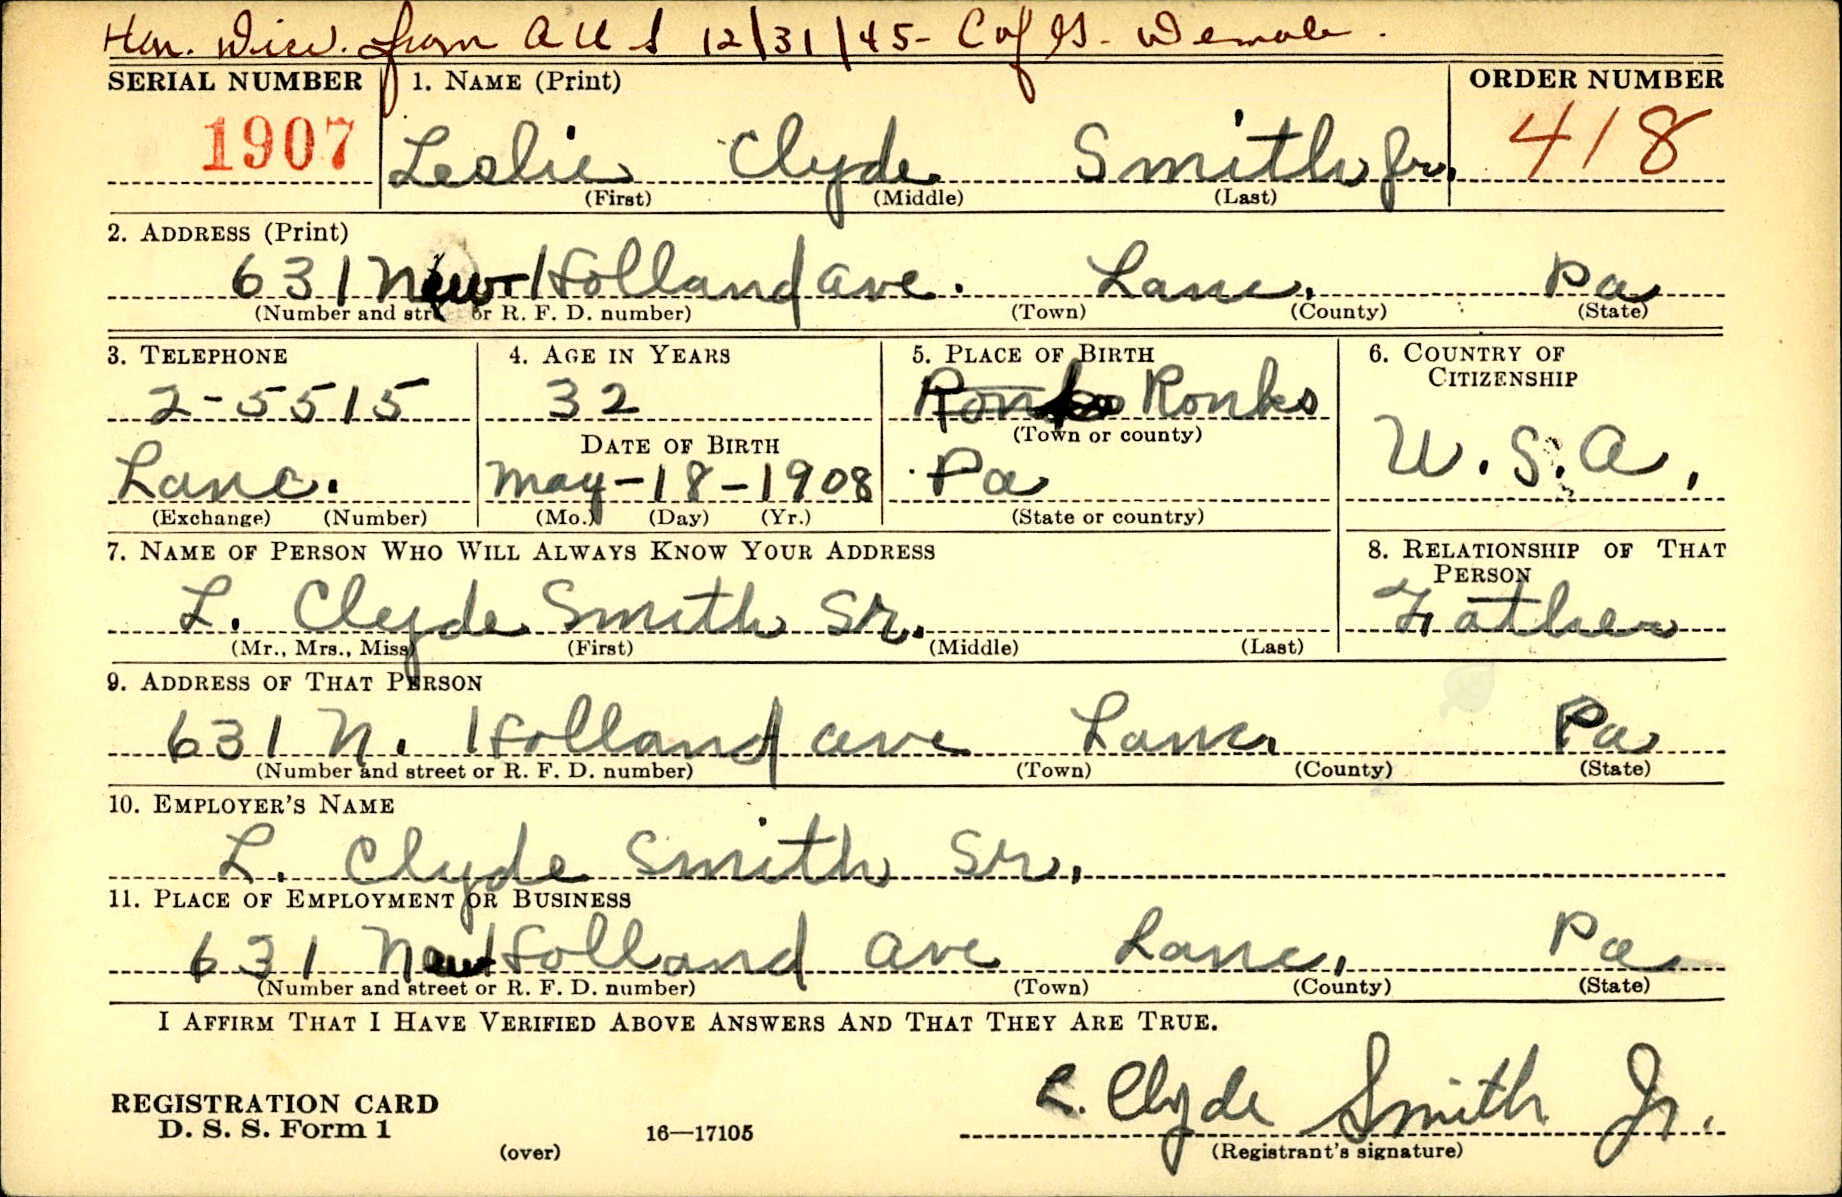 Hon. Disc. from AUS 12/31/45- C of G- Demob.
SERIAL NUMBER 1. NAME (Print) ORDER NUMBER
1907 Leslie Clyde Smith Jr. 418
(First) (Middle) (Last)
2. ADDRESS (Print)
631 New Holland ave. Lanc. Pa
(Number and street or R. F. D. number) (Town) (County) (State)
3. TELEPHONE 4. AGE IN YEARS 5. PLACE OF BIRTH 6. COUNTRY OF
CITIZENSHIP
2-5515 32 Ronks Ronks
DATE OF BIRTH (Town or county)
Lanc. May-18-1908 Pa U.S.A.
(Exchange) (Number) (Mo.) (Day) (Yr.) (State or country)
7. NAME OF PERSON WHO WILL ALWAYS KNOW YOUR ADDRESS 8. RELATIONSHIP OF THAT
PERSON
L. Clyde Smith Sr. Father
(Mr., Mrs., Miss) (First) (Middle) (Last)
9. ADDRESS OF THAT PERSON
631 N. Holland ave Lanc. Pa
(Number and street or R. F. D. number) (Town) (County) (State)
10. EMPLOYER'S NAME
L. Clyde Smith Sr.
11. PLACE OF EMPLOYMENT OR BUSINESS
631 New Holland ave Lanc. Pa
(Number and street or R. F. D. number) (Town) (County) (State)
I AFFIRM THAT I HAVE VERIFIED ABOVE ANSWERS AND THAT THEY ARE TRUE.
L. Clyde Smith Jr.
REGISTRATION CARD
D. S. S. Form 1
(over) 16—17105 (Registrant's signature)